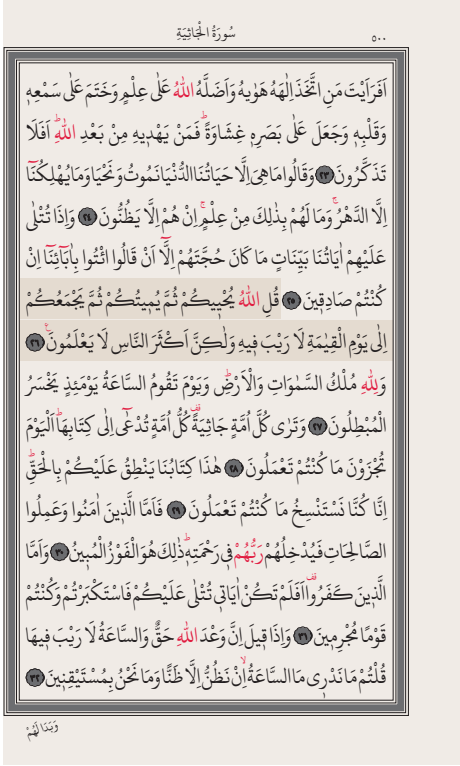 سُورَةُ الْجَاثِيَةِ ٥٠٠
اَفَرَاَيْتَ مَنِ اتَّخَذَ اِلٰهَهُ هَوٰيهُ وَاَضَلَّهُ اللّٰهُ عَلٰى عِلْمٍ وَخَتَمَ عَلٰى سَمْعِهٖ
وَقَلْبِهٖ وَجَعَلَ عَلٰى بَصَرِهٖ غِشَاوَةًۜ فَمَنْ يَهْدٖيهِ مِنْ بَعْدِ اللّٰهِۜ اَفَلَا
تَذَكَّرُونَ ﴿٢٣﴾ وَقَالُوا مَا هِيَ اِلَّا حَيَاتُنَا الدُّنْيَا نَمُوتُ وَنَحْيَا وَمَا يُهْلِكُنَٓا
اِلَّا الدَّهْرُۚ وَمَا لَهُمْ بِذٰلِكَ مِنْ عِلْمٍۚ اِنْ هُمْ اِلَّا يَظُنُّونَ ﴿٢٤﴾ وَاِذَا تُتْلٰى
عَلَيْهِمْ اٰيَاتُنَا بَيِّنَاتٍ مَا كَانَ حُجَّتَهُمْ اِلَّٓا اَنْ قَالُوا ائْتُوا بِاٰبَٓائِنَٓا اِنْ
كُنْتُمْ صَادِقٖينَ ﴿٢٥﴾ قُلِ اللّٰهُ يُحْيٖيكُمْ ثُمَّ يُمٖيتُكُمْ ثُمَّ يَجْمَعُكُمْ
اِلٰى يَوْمِ الْقِيٰمَةِ لَا رَيْبَ فٖيهِ وَلٰكِنَّ اَكْثَرَ النَّاسِ لَا يَعْلَمُونَ۟ ﴿٢٦﴾
وَلِلّٰهِ مُلْكُ السَّمٰوَاتِ وَالْاَرْضِۜ وَيَوْمَ تَقُومُ السَّاعَةُ يَوْمَئِذٍ يَخْسَرُ
الْمُبْطِلُونَ ﴿٢٧﴾ وَتَرٰى كُلَّ اُمَّةٍ جَاثِيَةً۠ كُلُّ اُمَّةٍ تُدْعٰٓى اِلٰى كِتَابِهَاۜ اَلْيَوْمَ
تُجْزَوْنَ مَا كُنْتُمْ تَعْمَلُونَ ﴿٢٨﴾ هٰذَا كِتَابُنَا يَنْطِقُ عَلَيْكُمْ بِالْحَقِّۜ
اِنَّا كُنَّا نَسْتَنْسِخُ مَا كُنْتُمْ تَعْمَلُونَ ﴿٢٩﴾ فَاَمَّا الَّذٖينَ اٰمَنُوا وَعَمِلُوا
الصَّالِحَاتِ فَيُدْخِلُهُمْ رَبُّهُمْ فٖي رَحْمَتِهٖۜ ذٰلِكَ هُوَ الْفَوْزُ الْمُبٖينُ ﴿٣٠﴾ وَاَمَّا
الَّذٖينَ كَفَرُوا۠ اَفَلَمْ تَكُنْ اٰيَاتٖي تُتْلٰى عَلَيْكُمْ فَاسْتَكْبَرْتُمْ وَكُنْتُمْ
قَوْمًا مُجْرِمٖينَ ﴿٣١﴾ وَاِذَا قٖيلَ اِنَّ وَعْدَ اللّٰهِ حَقٌّ وَالسَّاعَةُ لَا رَيْبَ فٖيهَا
قُلْتُمْ مَا نَدْرٖي مَا السَّاعَةُۙ اِنْ نَظُنُّ اِلَّا ظَنًّا وَمَا نَحْنُ بِمُسْتَيْقِنٖينَ ﴿٣٢﴾
وَبَدَا لَهُمْ